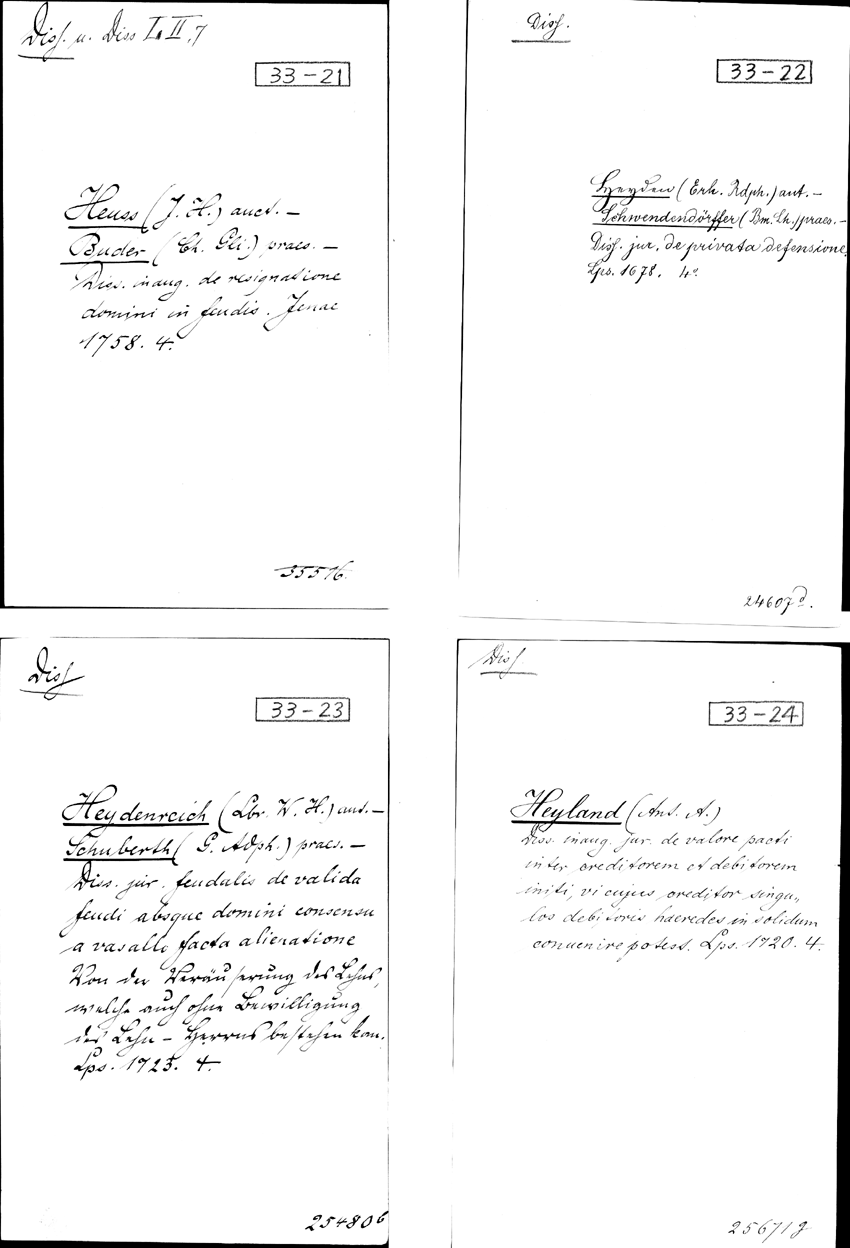 Diss. u. Diss I. II, 7
33-21
Heuss (J. H.) auct. —
Buder (Ch. Gli.) praes. —
Diss. inaug. de resignatione
domini in feudis. Jenae
1758. 4.
35516.
Diss.
33-22
Heyden (Erh. Rdph.) aut. —
Schwendendörffer (Bm. Lh.) praes. —
Diss. jur. de privata defensione.
Lps. 1678. 4°.
24607d.
Diss
33-23
Heydenreich (Lbr. W. H.) aut. —
Schuberth (G. Adph.) praes. —
Diss. jur. feudalis de valida
feudi absque domini consensu
a vasallo facta alienatione
Von der Veräußerung des Lehns,
welche auch ohne Bewilligung
des Lehn-Herrns bestehen kan.
Lps. 1725. 4.
25480b
Diss.
33-24
Heyland (Ant. A.)
Diss. inaug. jur. de valore pacti
inter creditorem et debitorem
initi, vi cujus creditor singu,,
los debitoris haeredes in solidum
convenire potest. Lps. 1720. 4.
25671g